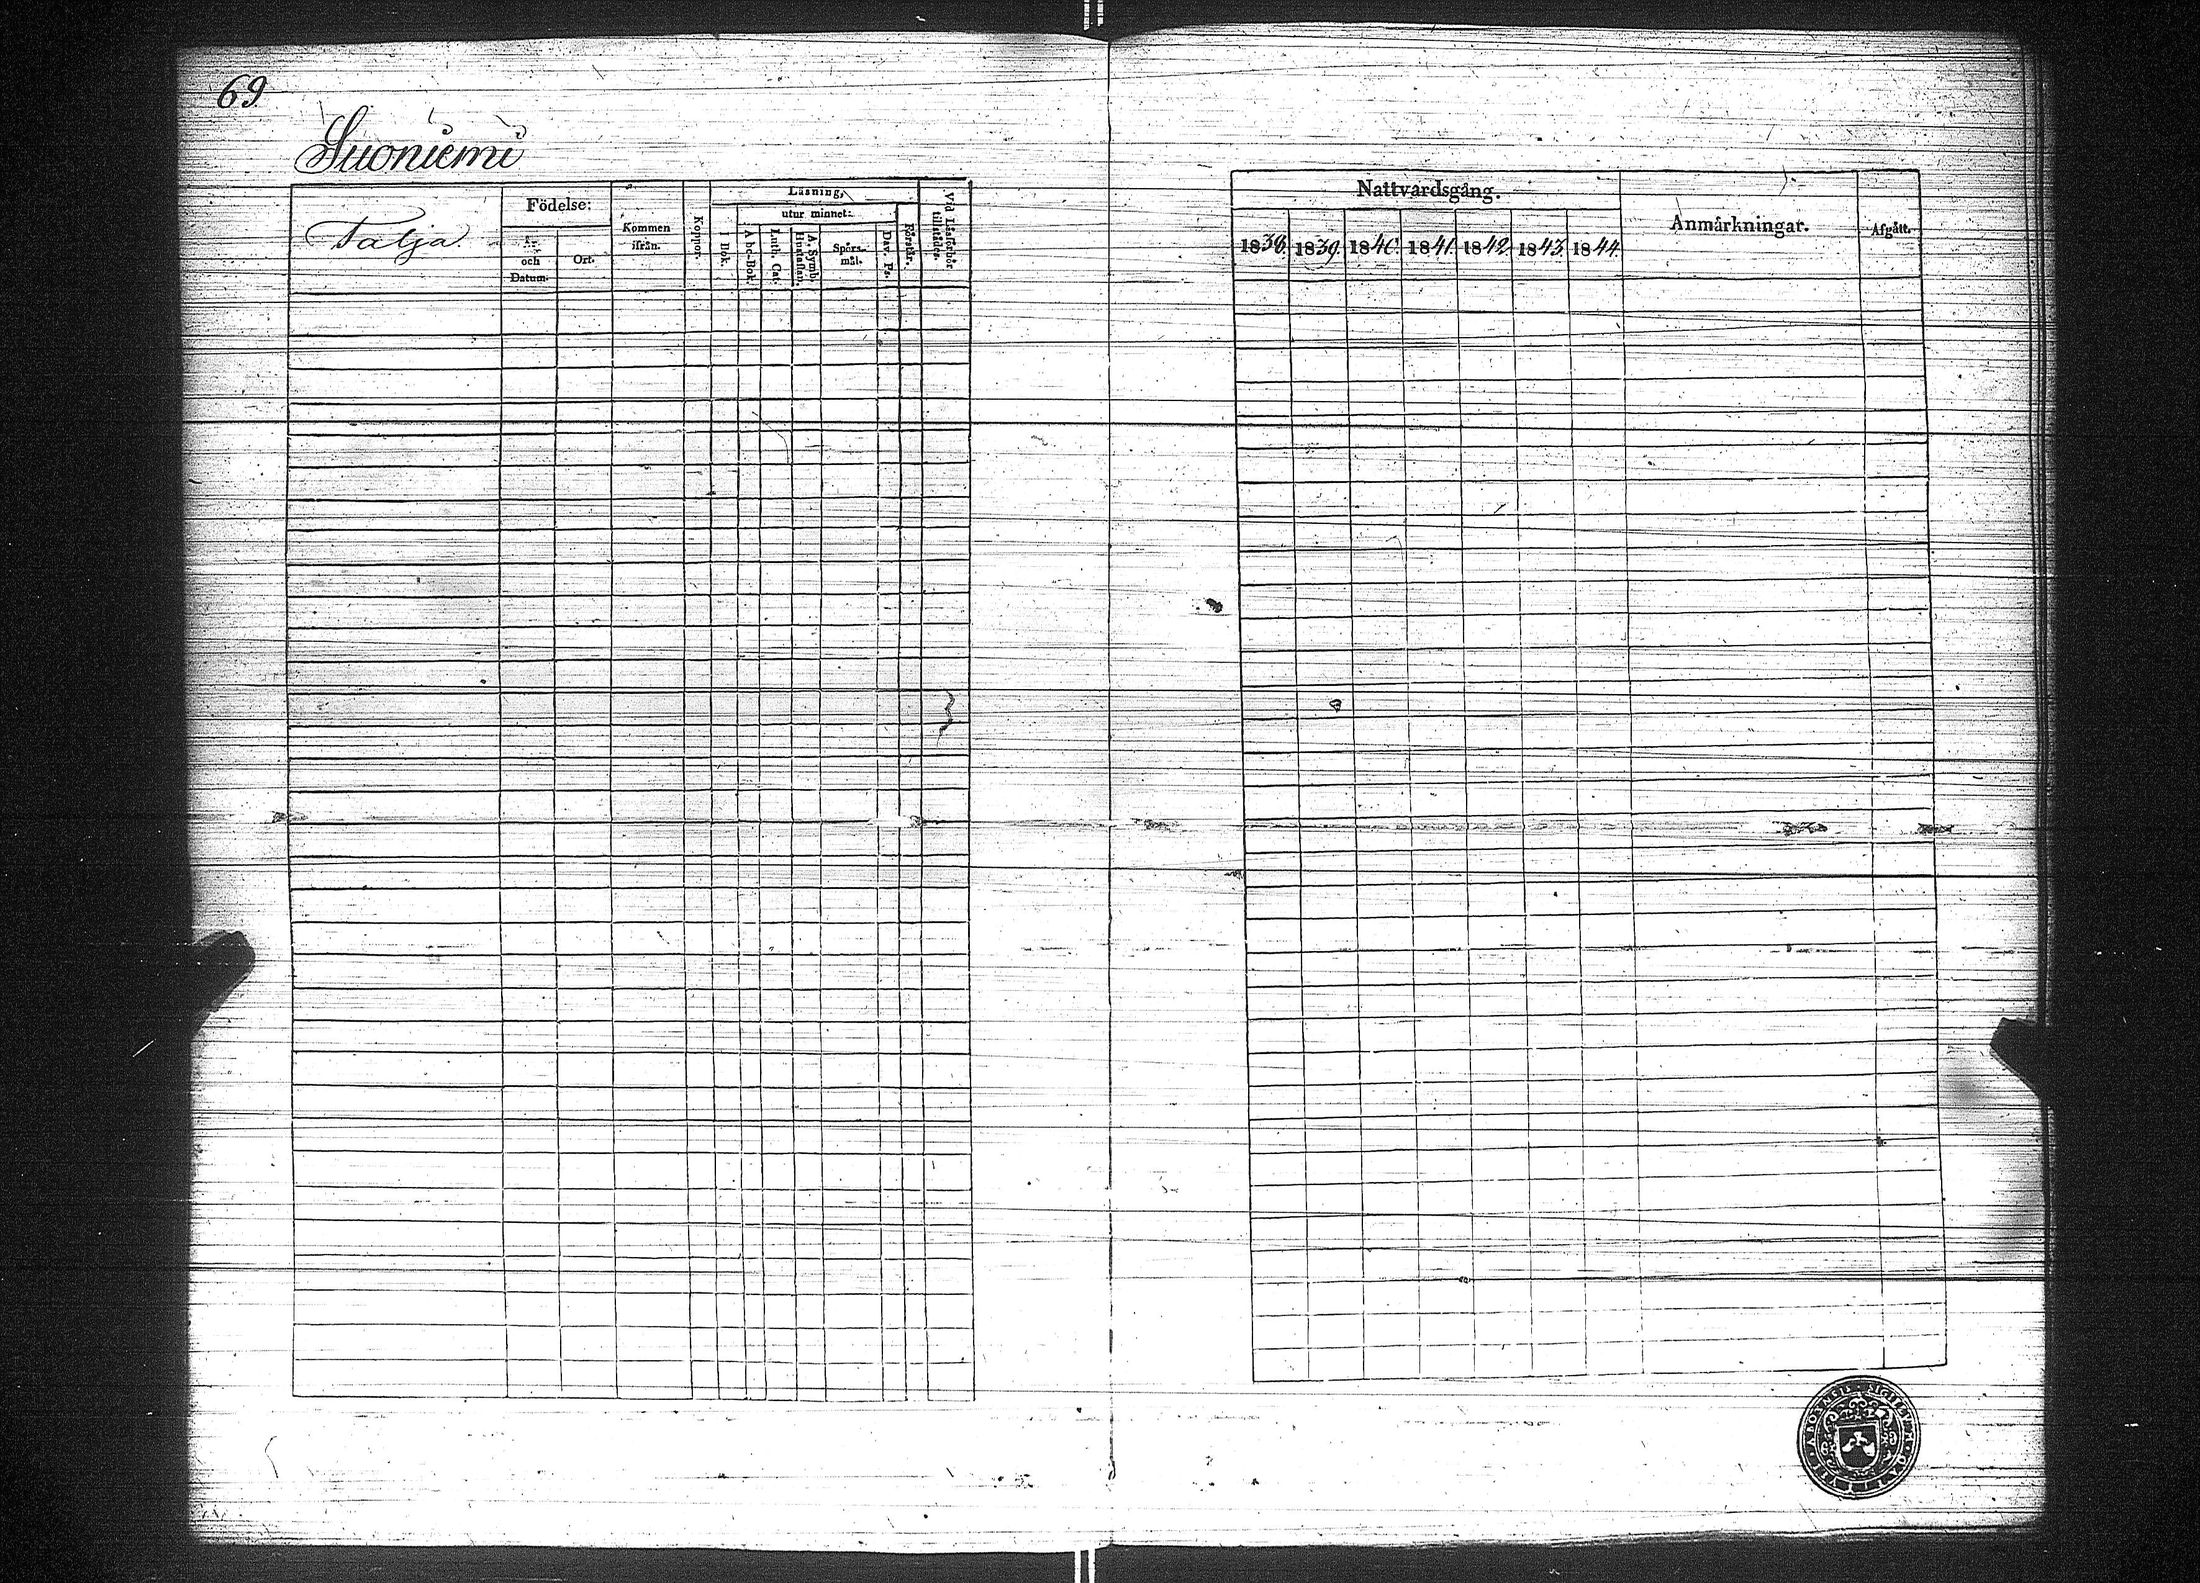 69
Suoniemi
Talja
Födelse:
År
och
Datum.
Ort.
Kommen
ifrån.
Koppor.
Läsning,
utur minnet:
I Bok.
A bc-Bok.
Luth. Cat.
A. Symb.
Hustaflan.
Spörs-
mål.
Dav. Ps.
Förstår.
Vid Läsförhör
tillstädes.
Nattvardsgång.
1838. 1839. 1840. 1841. 1842. 1843. 1844.
Anmärkningar.
Afgått.